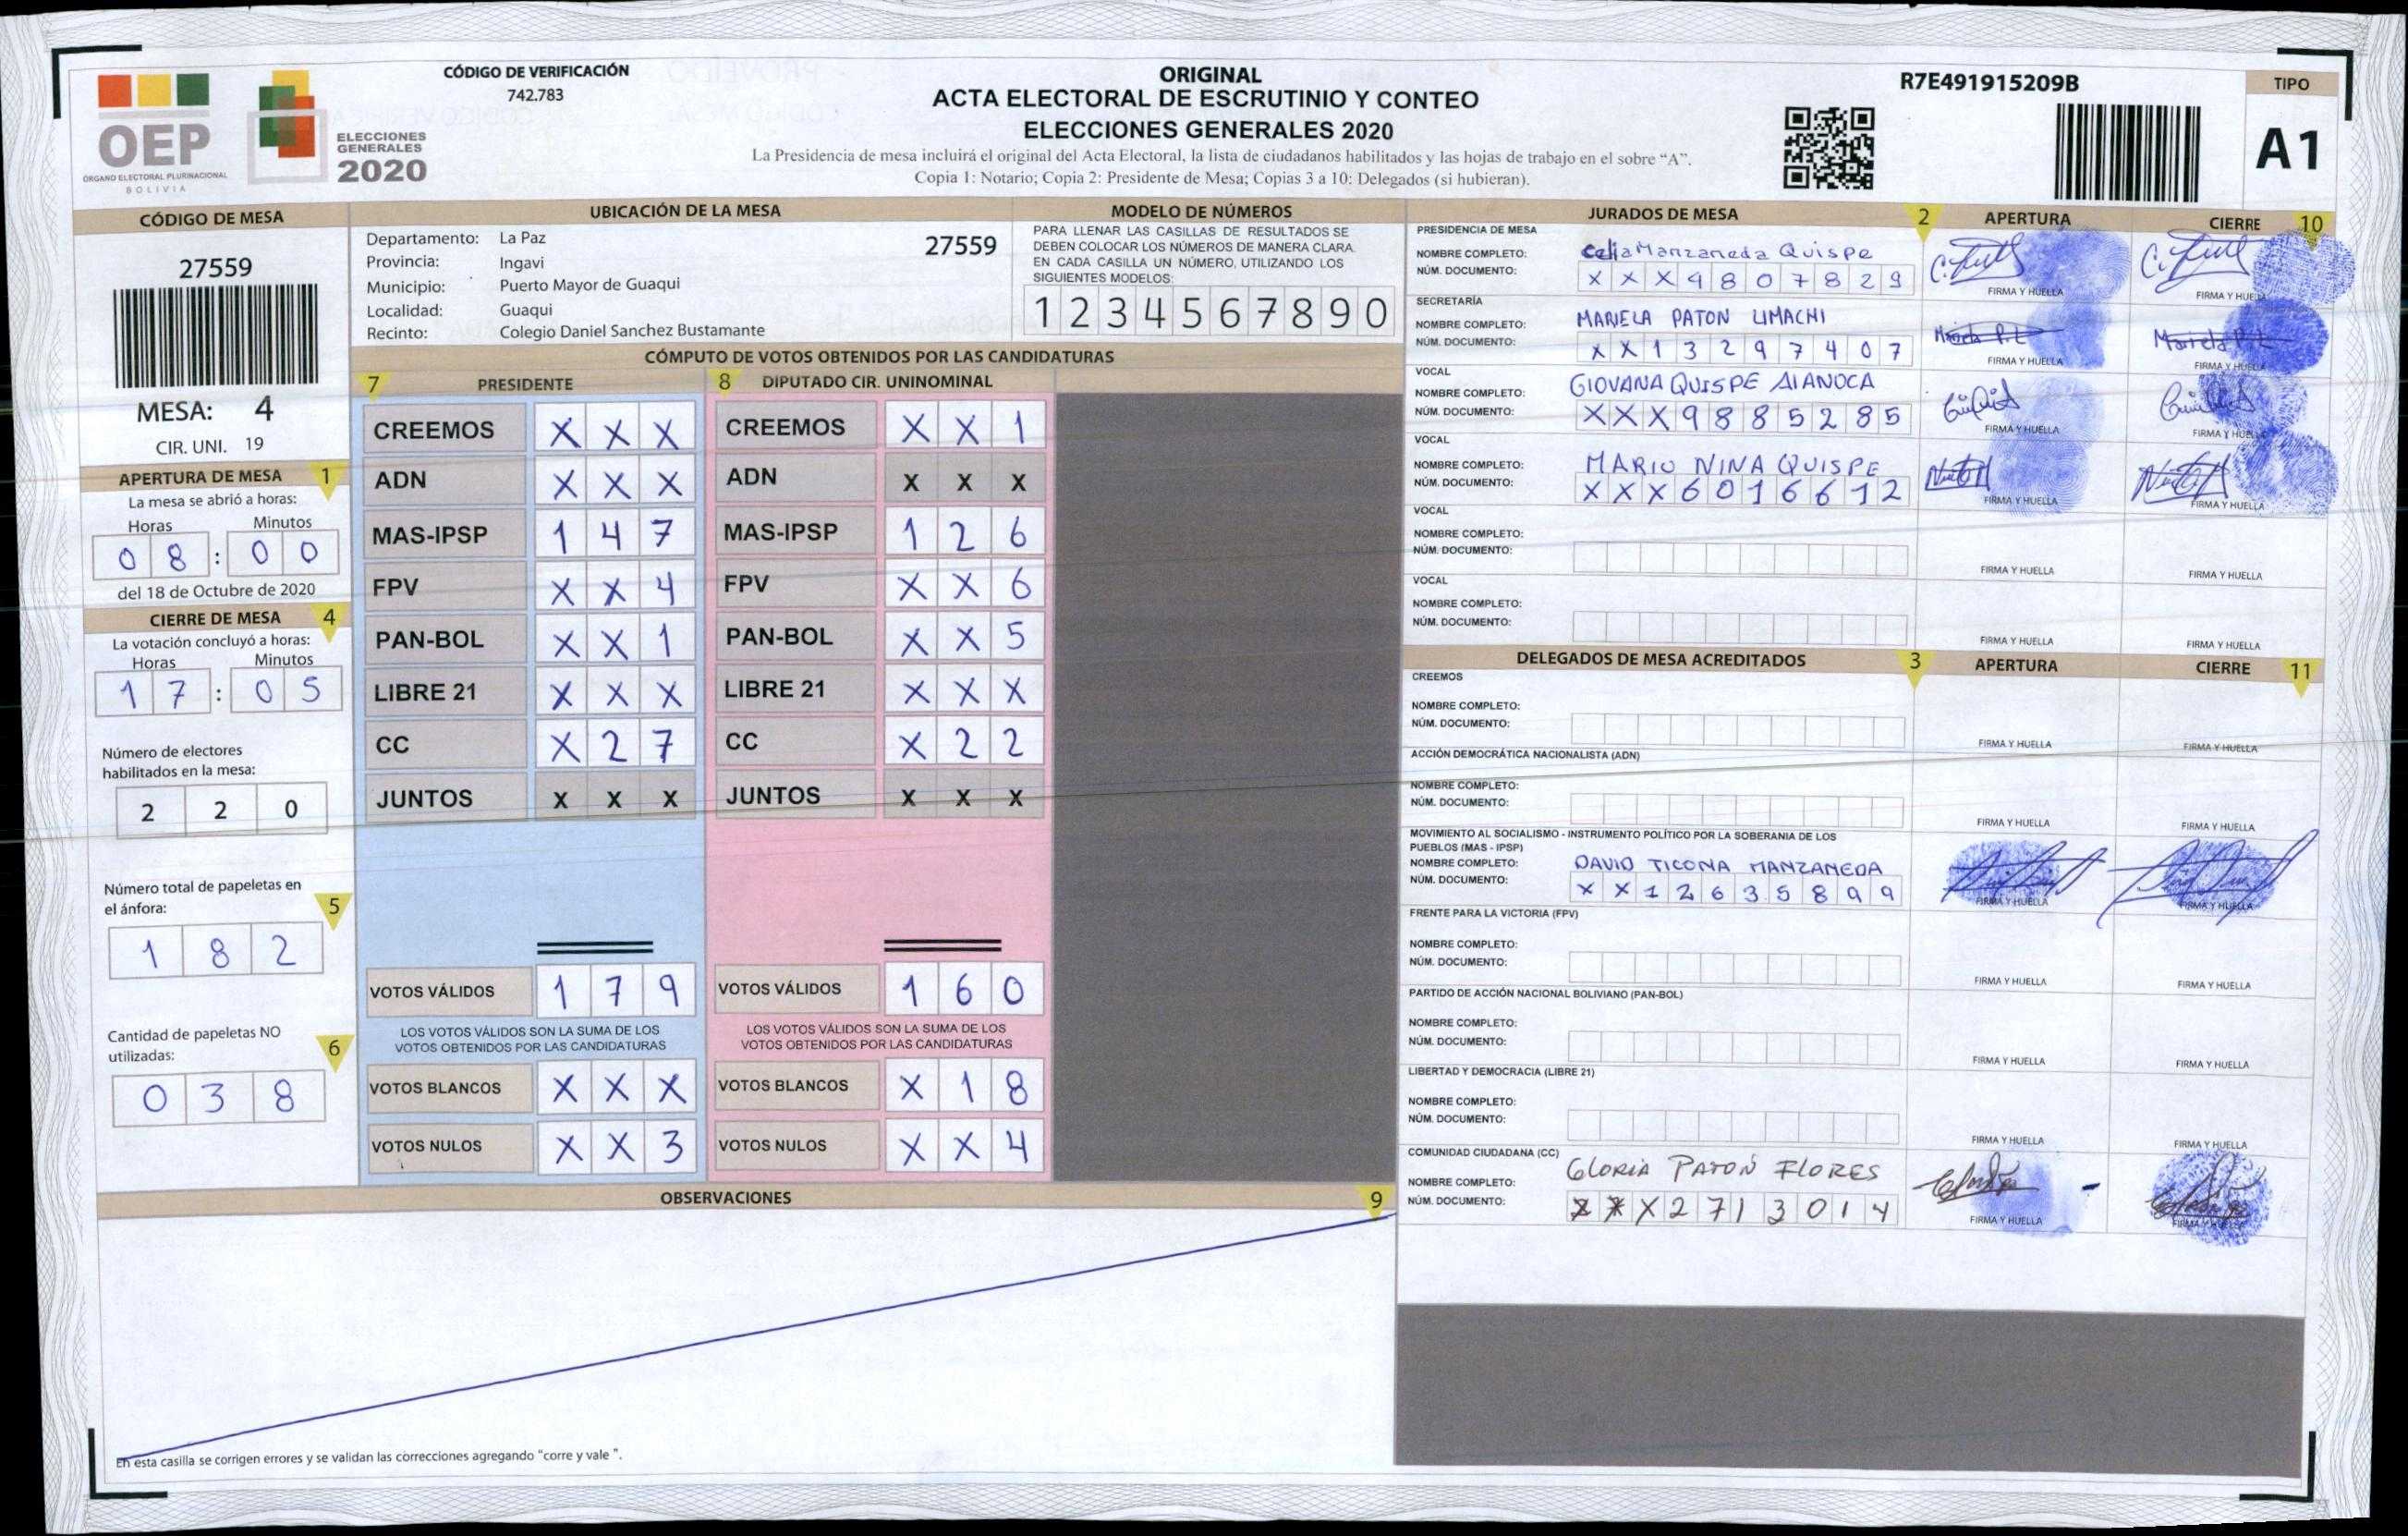 OEP
ÓRGANO ELECTORAL PLURINACIONAL
BOLIVIA
ELECCIONES
GENERALES
2020
CÓDIGO DE VERIFICACIÓN
742.783
ORIGINAL
ACTA ELECTORAL DE ESCRUTINIO Y CONTEO
ELECCIONES GENERALES 2020
La Presidencia de mesa incluirá el original del Acta Electoral, la lista de ciudadanos habilitados y las hojas de trabajo en el sobre “A”.
Copia 1: Notario; Copia 2: Presidente de Mesa; Copias 3 a 10: Delegados (si hubieran).
R7E491915209B
TIPO
A1
CÓDIGO DE MESA
27559
MESA: 4
CIR. UNI. 19
APERTURA DE MESA 1
La mesa se abrió a horas:
Horas Minutos
0 8 : 0 0
del 18 de Octubre de 2020
CIERRE DE MESA 4
La votación concluyó a horas:
Horas Minutos
1 7 : 0 5
Número de electores
habilitados en la mesa:
2 2 0
Número total de papeletas en
el ánfora: 5
1 8 2
Cantidad de papeletas NO
utilizadas: 6
0 3 8
UBICACIÓN DE LA MESA
Departamento: La Paz 27559
Provincia: Ingavi
Municipio: Puerto Mayor de Guaqui
Localidad: Guaqui
Recinto: Colegio Daniel Sanchez Bustamante
MODELO DE NÚMEROS
PARA LLENAR LAS CASILLAS DE RESULTADOS SE
DEBEN COLOCAR LOS NÚMEROS DE MANERA CLARA.
EN CADA CASILLA UN NÚMERO, UTILIZANDO LOS
SIGUIENTES MODELOS:
1 2 3 4 5 6 7 8 9 0
CÓMPUTO DE VOTOS OBTENIDOS POR LAS CANDIDATURAS
7 PRESIDENTE 8 DIPUTADO CIR. UNINOMINAL
CREEMOS X X X CREEMOS X X 1
ADN X X X ADN X X X
MAS-IPSP 1 4 7 MAS-IPSP 1 2 6
FPV X X 4 FPV X X 6
PAN-BOL X X 1 PAN-BOL X X 5
LIBRE 21 X X X LIBRE 21 X X X
CC X 2 7 CC X 2 2
JUNTOS X X X JUNTOS X X X
VOTOS VÁLIDOS 1 7 9 VOTOS VÁLIDOS 1 6 0
LOS VOTOS VÁLIDOS SON LA SUMA DE LOS LOS VOTOS VÁLIDOS SON LA SUMA DE LOS
VOTOS OBTENIDOS POR LAS CANDIDATURAS VOTOS OBTENIDOS POR LAS CANDIDATURAS
VOTOS BLANCOS X X X VOTOS BLANCOS X 1 8
VOTOS NULOS X X 3 VOTOS NULOS X X 4
OBSERVACIONES 9
En esta casilla se corrigen errores y se validan las correcciones agregando "corre y vale ".
JURADOS DE MESA 2 APERTURA CIERRE 10
PRESIDENCIA DE MESA
NOMBRE COMPLETO: Celia Manzaneda Quispe
NÚM. DOCUMENTO: X X X 4 8 0 7 8 2 9
FIRMA Y HUELLA FIRMA Y HUELLA
SECRETARÍA
NOMBRE COMPLETO: MARIELA PATON LIMACHI
NÚM. DOCUMENTO: X X 1 3 2 9 7 4 0 7
FIRMA Y HUELLA FIRMA Y HUELLA
VOCAL
NOMBRE COMPLETO: GIOVANA QUISPE AIANOCA
NÚM. DOCUMENTO: X X X 9 8 8 5 2 8 5
FIRMA Y HUELLA FIRMA Y HUELLA
VOCAL
NOMBRE COMPLETO: MARIO NINA QUISPE
NÚM. DOCUMENTO: X X X 6 0 1 6 6 1 2
FIRMA Y HUELLA FIRMA Y HUELLA
VOCAL
NOMBRE COMPLETO:
NÚM. DOCUMENTO:
FIRMA Y HUELLA FIRMA Y HUELLA
VOCAL
NOMBRE COMPLETO:
NÚM. DOCUMENTO:
FIRMA Y HUELLA FIRMA Y HUELLA
DELEGADOS DE MESA ACREDITADOS 3 APERTURA CIERRE 11
CREEMOS
NOMBRE COMPLETO:
NÚM. DOCUMENTO:
FIRMA Y HUELLA FIRMA Y HUELLA
ACCIÓN DEMOCRÁTICA NACIONALISTA (ADN)
NOMBRE COMPLETO:
NÚM. DOCUMENTO:
FIRMA Y HUELLA FIRMA Y HUELLA
MOVIMIENTO AL SOCIALISMO - INSTRUMENTO POLÍTICO POR LA SOBERANIA DE LOS
PUEBLOS (MAS - IPSP)
NOMBRE COMPLETO: DAVID TICONA MANZANEDA
NÚM. DOCUMENTO: X X 1 2 6 3 5 8 9 9
FIRMA Y HUELLA FIRMA Y HUELLA
FRENTE PARA LA VICTORIA (FPV)
NOMBRE COMPLETO:
NÚM. DOCUMENTO:
FIRMA Y HUELLA FIRMA Y HUELLA
PARTIDO DE ACCIÓN NACIONAL BOLIVIANO (PAN-BOL)
NOMBRE COMPLETO:
NÚM. DOCUMENTO:
FIRMA Y HUELLA FIRMA Y HUELLA
LIBERTAD Y DEMOCRACIA (LIBRE 21)
NOMBRE COMPLETO:
NÚM. DOCUMENTO:
FIRMA Y HUELLA FIRMA Y HUELLA
COMUNIDAD CIUDADANA (CC)
NOMBRE COMPLETO: GLORIA PATON FLORES
NÚM. DOCUMENTO: X X X 2 7 1 3 0 1 4
FIRMA Y HUELLA FIRMA Y HUELLA